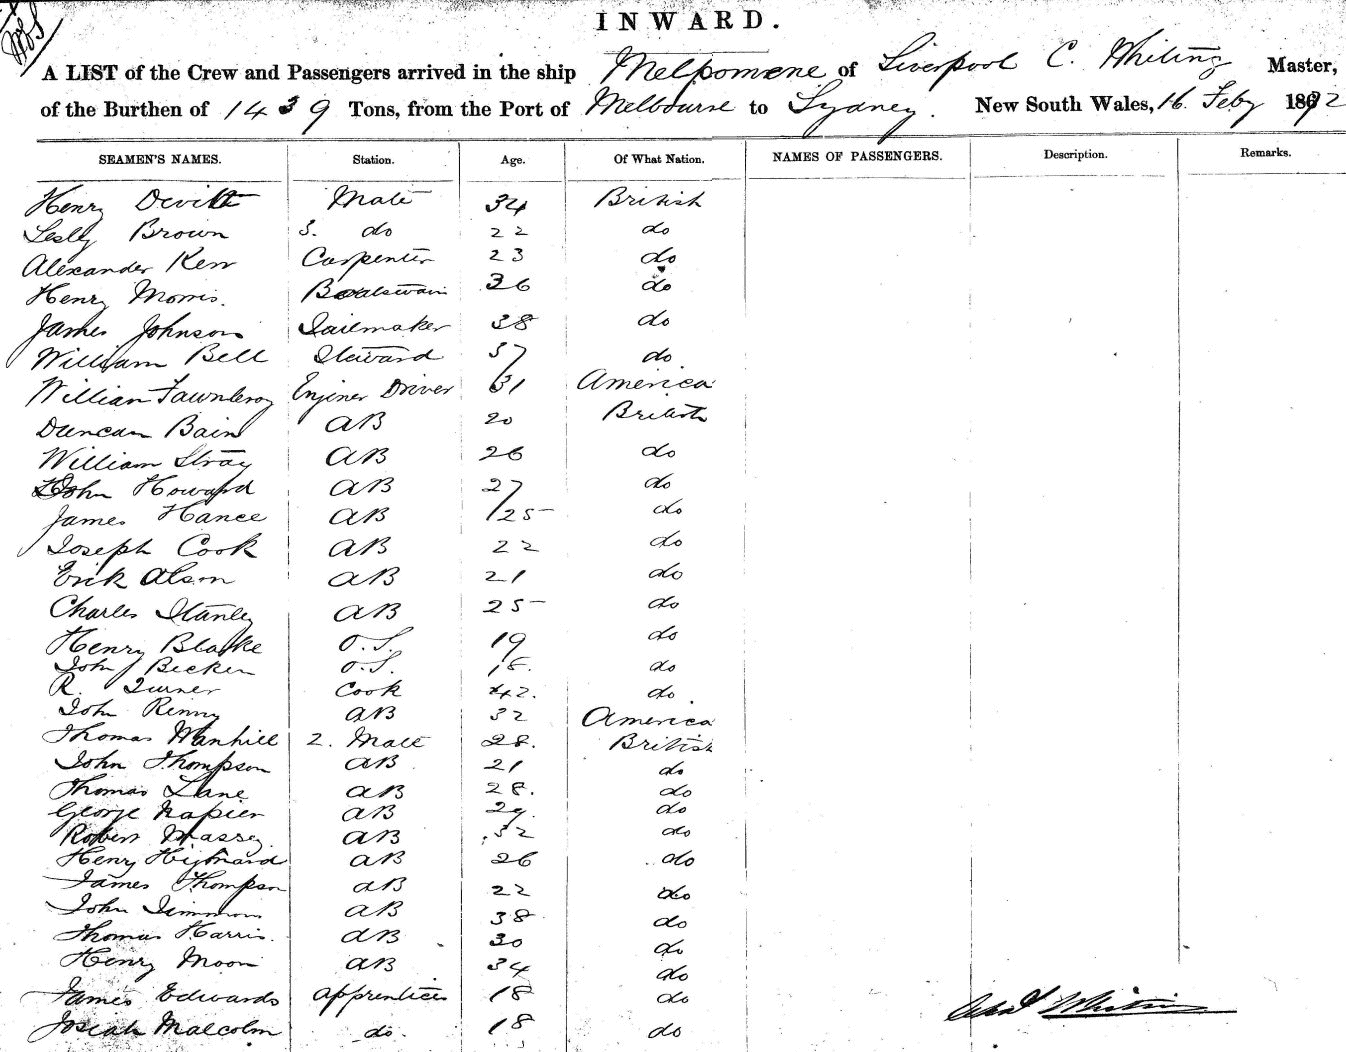 INWARD.
A LIST of the Crew and Passengers arrived in the ship Melpomene of Liverpool C. Whiting Master,
of the Burthen of 1439 Tons, from the Port of Melbourne to Sydney. New South Wales, 16 Feby 1872
SEAMEN'S NAMES. Station. Age. Of What Nation. NAMES OF PASSENGERS. Description. Remarks.
Henry Devitt Mate 34 British
Lesly Brown 3. do 22 do
Alexander Kerr Carpenter 23 do
Henry Morris. Boatswain 36 do
James Johnson Sailmaker 38 do
William Bell Steward 37 do
William Fauntleroy Enjiner Driver 31 America
Duncan Bain AB 20 British
William Stray AB 26 do
John Howard AB 27 do
James Hance AB 25 do
Joseph Cook AB 22 do
Erik Olson AB 21 do
Charles Stanley AB 25 do
Henry Blake O.S. 19 do
John Becken O.S. 18. do
R. Turner Cook 42. do
John Kenny AB 32 America
Thomas Wanhill 2. Mate 28. British
John Thompson AB 21 do
Thomas Lane AB 28. do
George Napier AB 29. do
Robert Massey AB 32 do
Henry AB 26 do
James Thompson AB 22 do
John Simmons AB 38 do
Thomas Harris. AB 30 do
Henry Moon AB 34 do
James Edwards apprentices 18 do
Josiah Malcolm do. 18 do
Whiting